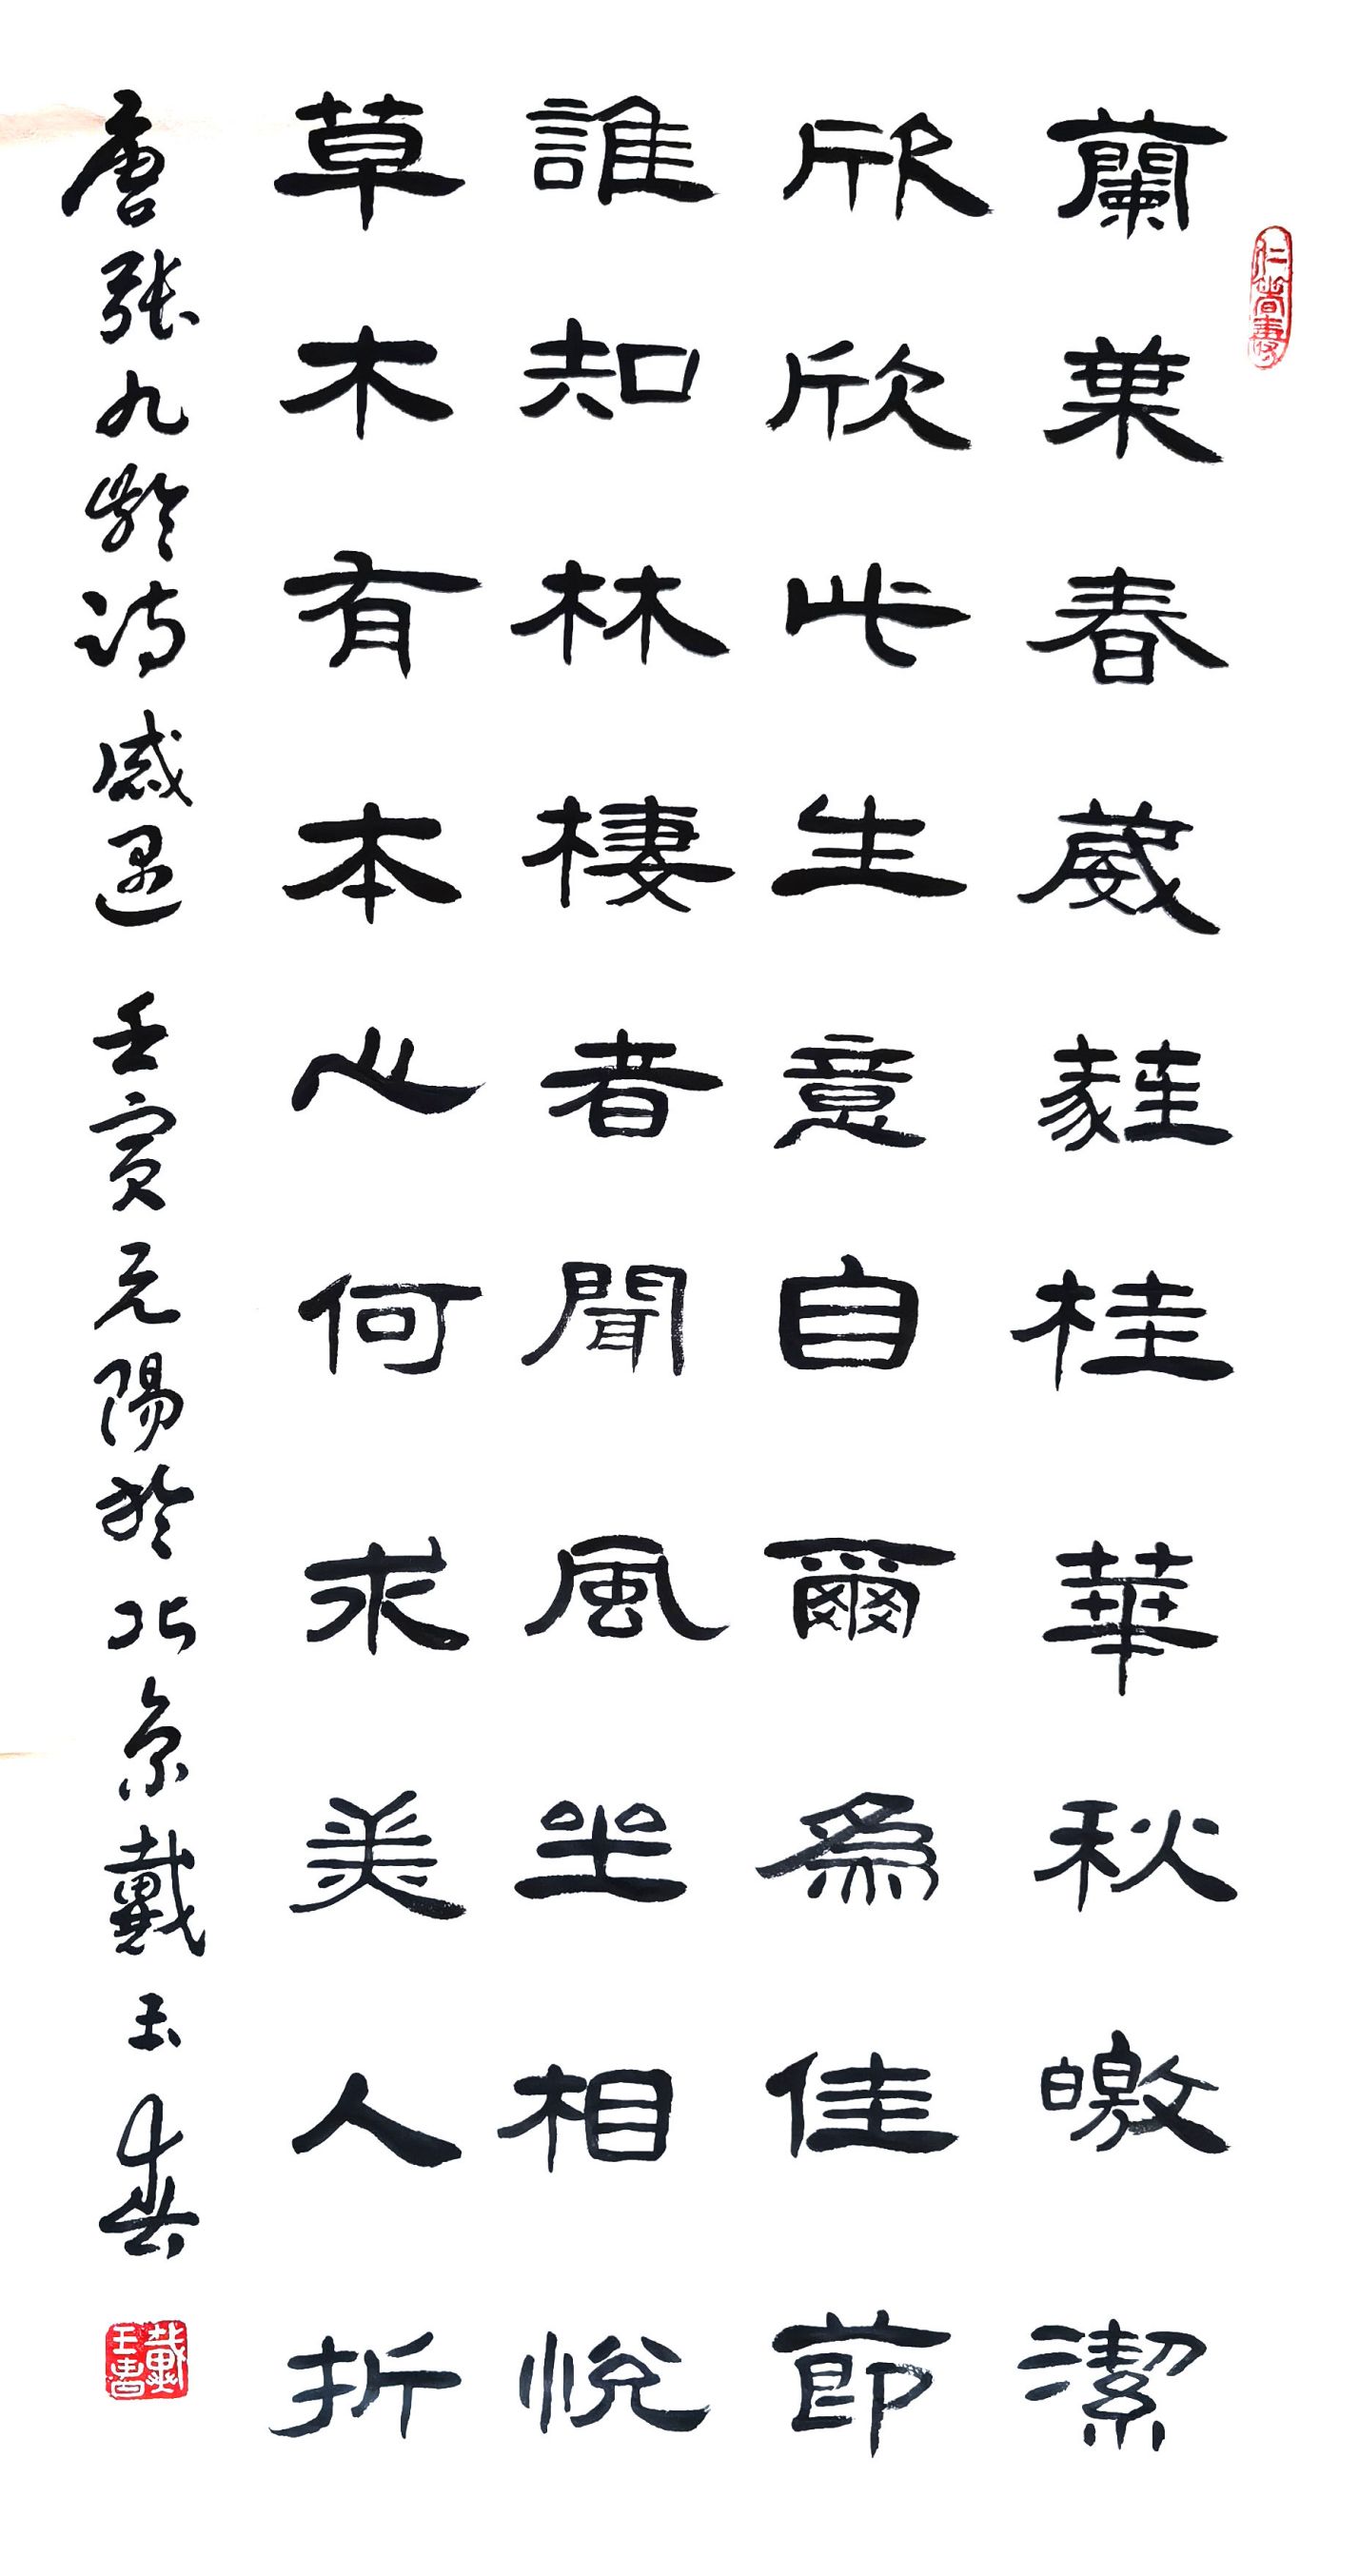 仁者壽
蘭葉春葳蕤桂華秋皦潔
欣欣此生意自爾為佳節
誰知林棲者聞風坐相悅
草木有本心何求美人折
唐張九齡詩感遇 壬寅元陽於北京戴玉春
戴玉春